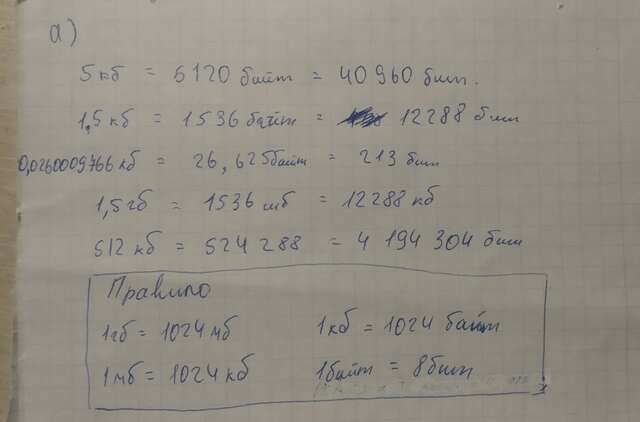 а)
5 кб = 5120 байт = 40960 бит.
1,5 кб = 1536 байт = 12288 бит
0,0260009766 кб = 26,625байт = 213 бит
1,5гб = 1536 мб = 12288 кб
512 кб = 524 288 = 4 194 304 бит
Правило
1гб = 1024 мб 1кб = 1024 байт
1мб = 1024 кб 1байт = 8бит